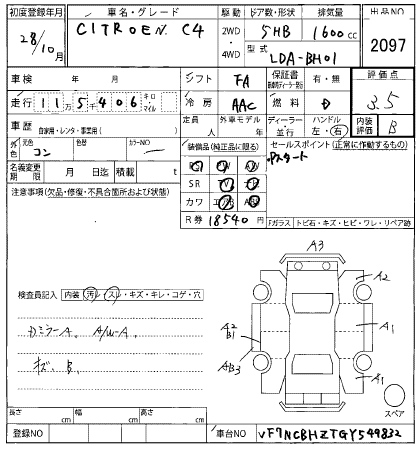 初度登録年月 車名・グレード 駆動 ドア数・形状 排気量 出品NO
28/10月 CITROEN C4 2WD・4WD 5HB 1600cc 2097
型式 LDA-BH01
車検 年 月 シフト FA 保証書 有・無 評価点
走行 11万5千406 キロ・マイル 冷房 AAC 燃料 D 3.5
車歴 自家用・レンタ・事業用( ) 定員 人 外車モデル 年 ディーラー・並行 ハンドル 左・右 内装評価 B
外色 元色 コン 色替 カラーNO 装備品(純正品に限る) セールスポイント(正常に作動するもの)
名義変更期限 月 日迄 積載 t PS PW Pスタート
注意事項(欠品・修復・不具合箇所および状態) SR
カワ
R券 18540円 Fガラス トビ石・キズ・ヒビ・ワレ・リペア跡
A3
A2
検査員記入 内装 汚レ・スレ・キズ・キレ・コゲ・穴
ドミラーA. A/W-A.
キズ. B.
A2
B1
A1
AB3
A1
スペア
長さ cm 幅 cm 高さ cm
登録NO 車台NO VF7NCBHZTGY549832